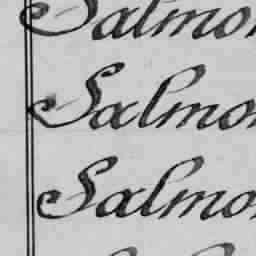 Salmo
Salmo
Salmo